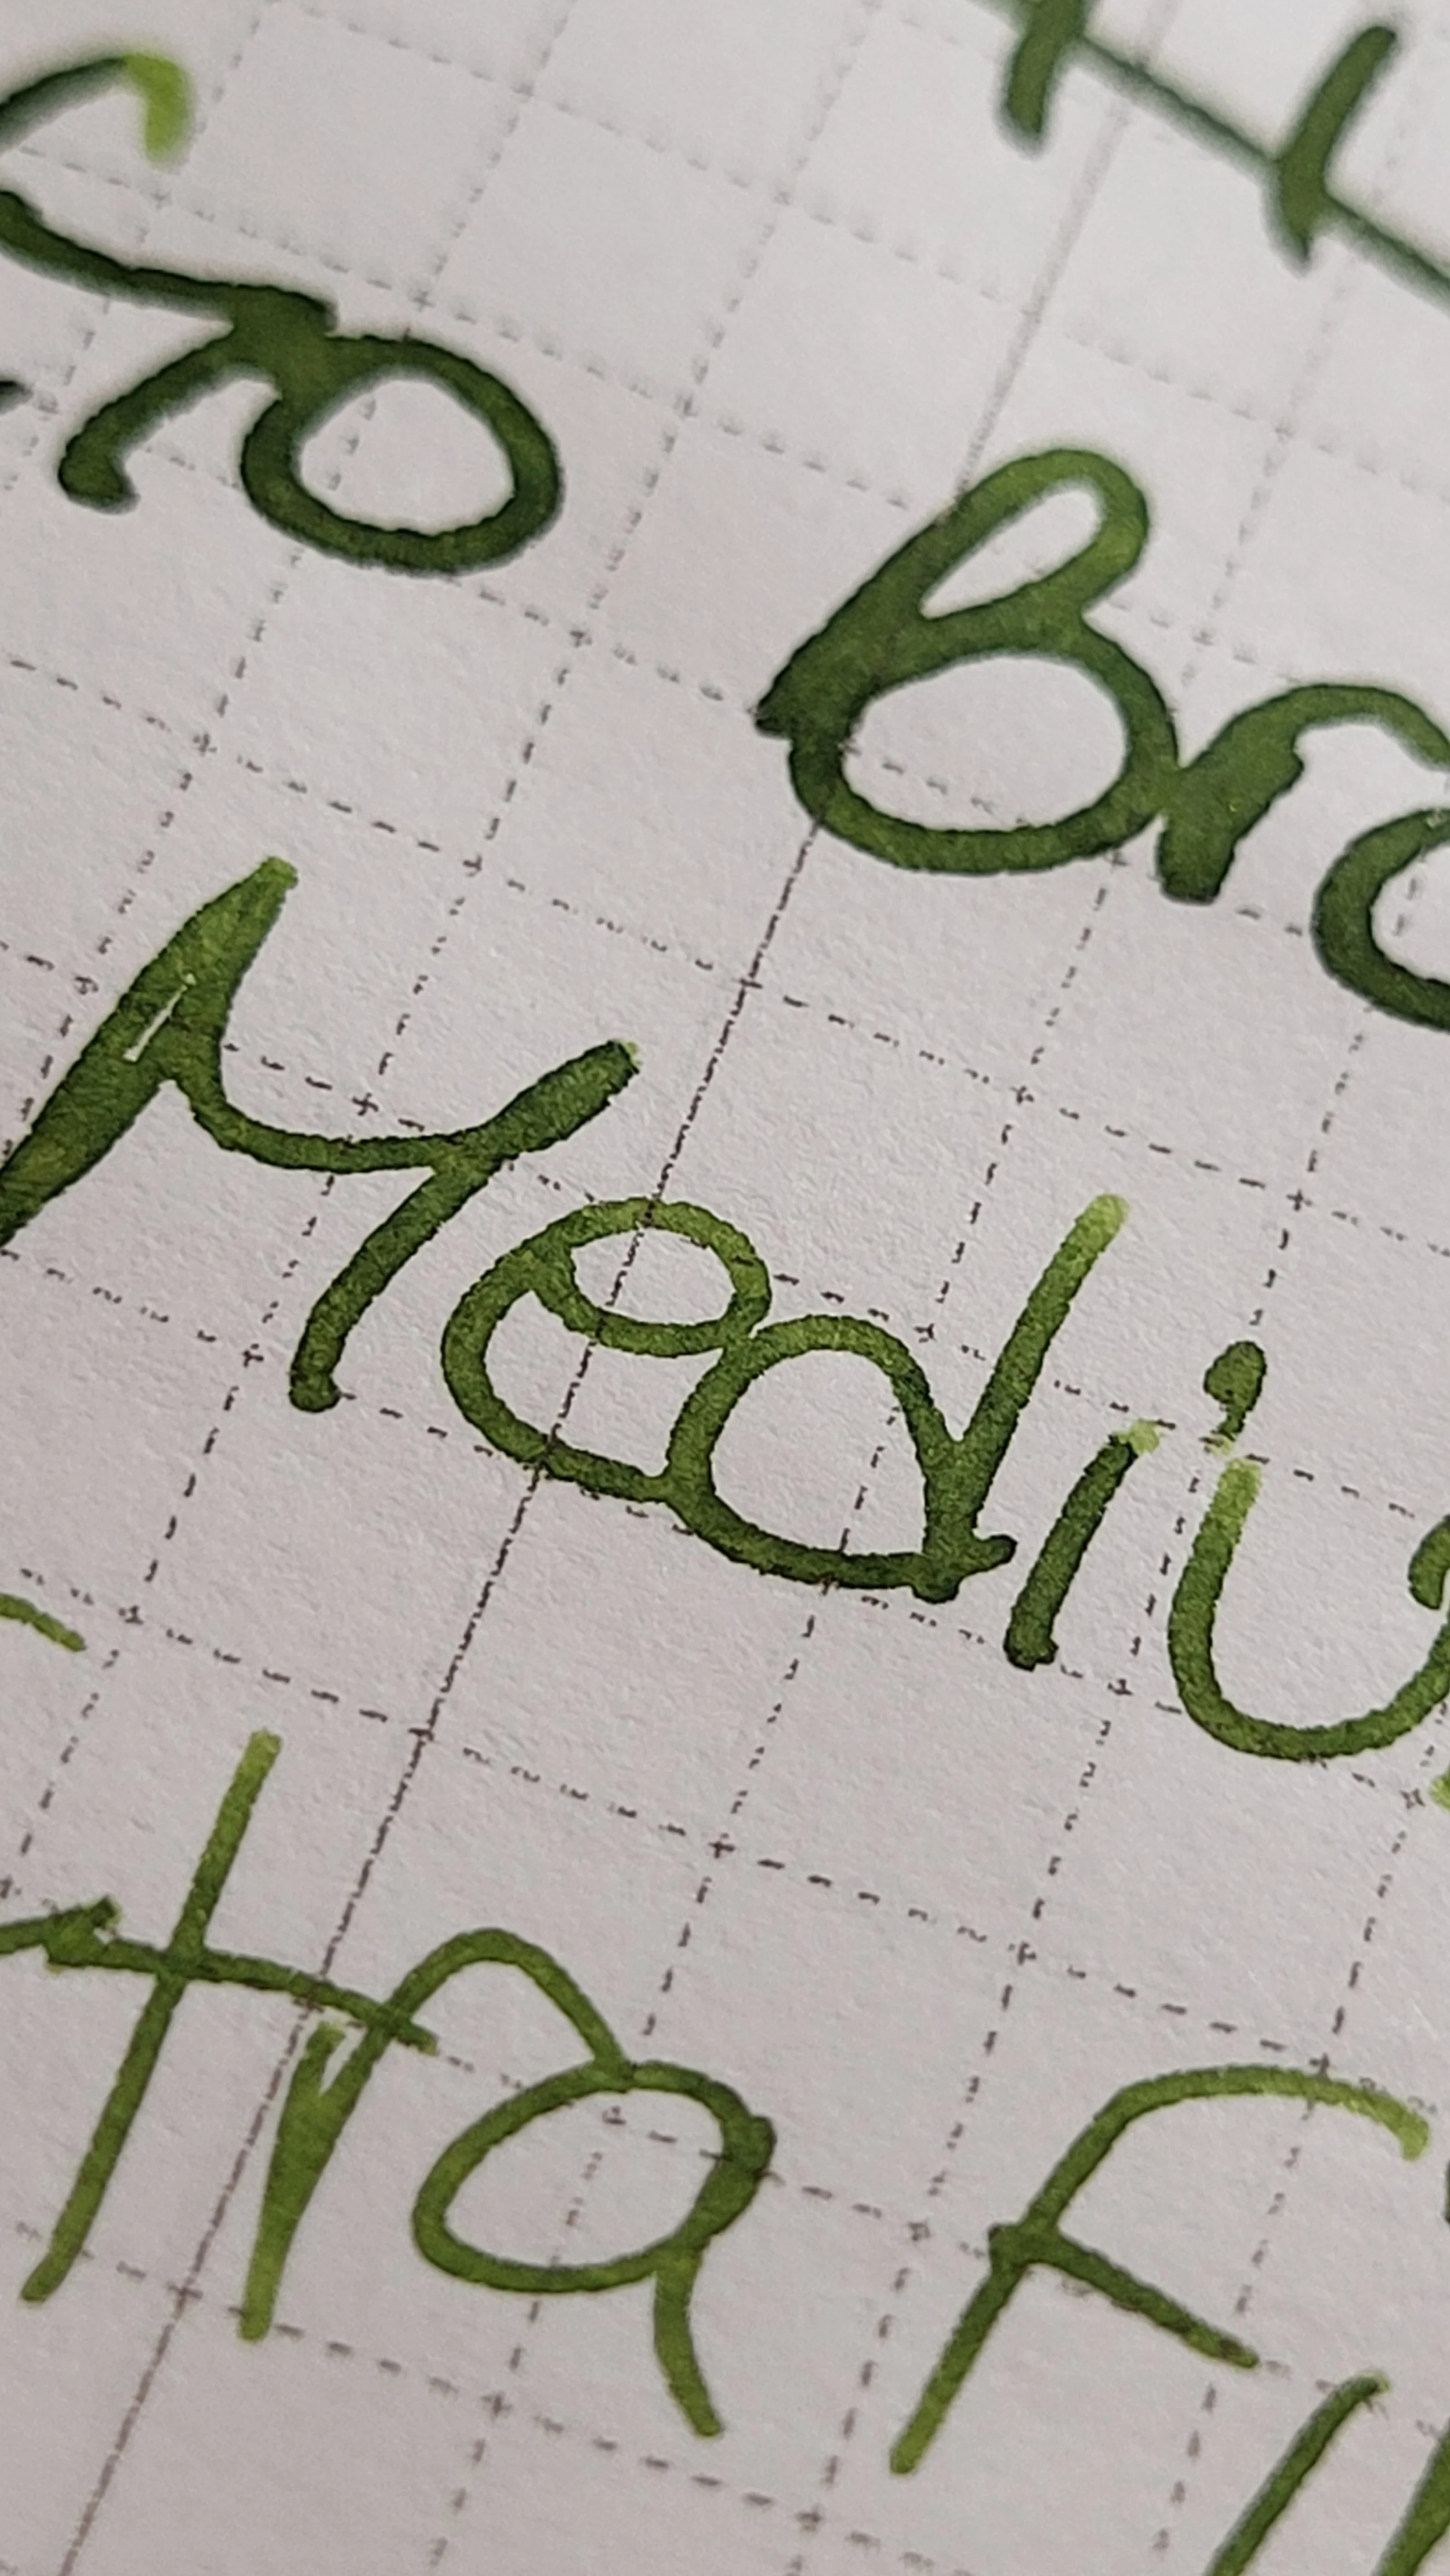 ro Bro
Mediu
tra Fi